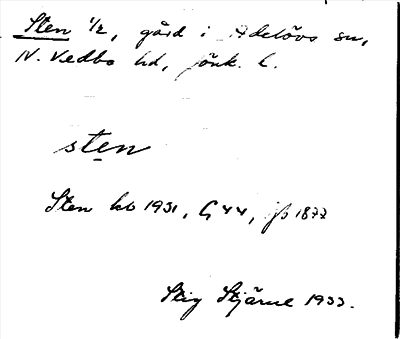 Sten 1/2, gård i Adelövs sn,
N. Vedbo hd, Jönk. l.
sten
Sten kb 1931, G 44, jb 1877
Stig Stjärne 1933.